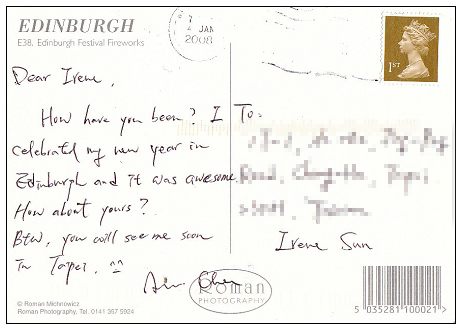 EDINBURGH
E38, Edinburgh Festival Fireworks
JAN
2008
1ST
Dear Irene,
How have you been? I
celebrated my new year in
Edinburgh and it was awesome.
How about yours?
Btw, you will see me soon
in Taipei. ^^
Chen
To:
Irene Sun
© Roman Michnowicz
Roman Photography, Tel. 0141 357 5924
Roman
PHOTOGRAPHY
5 035281 100021 >